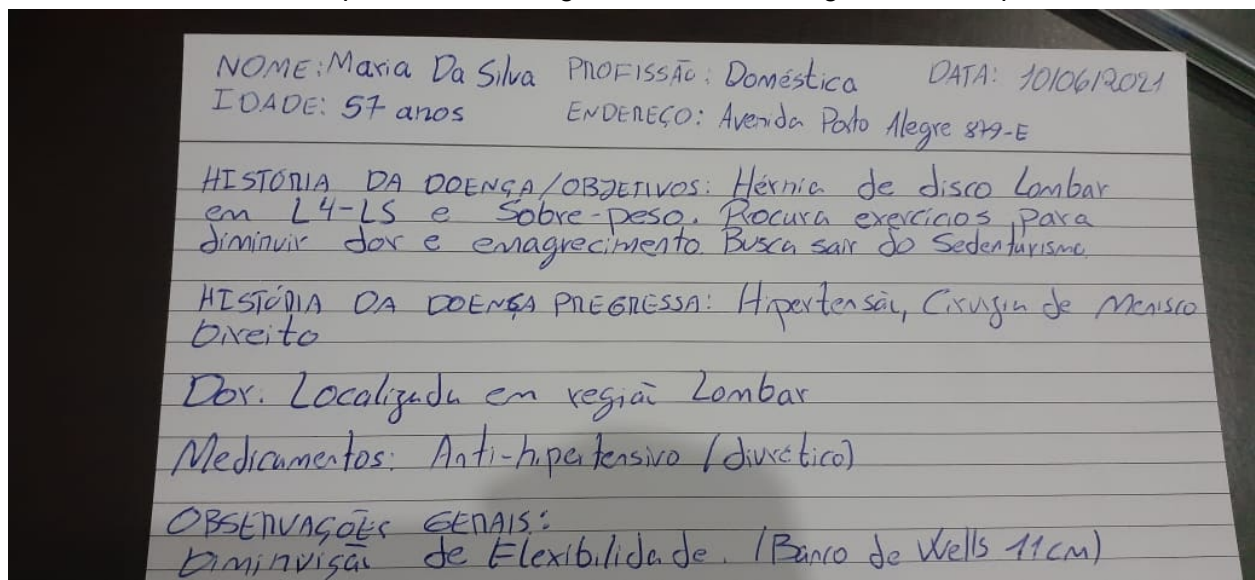 NOME: Maria Da Silva PROFISSÃO: Doméstica DATA: 10/06/2021
IDADE: 57 anos ENDEREÇO: Avenida Porto Alegre 879-E
HISTÓRIA DA DOENÇA/OBJETIVOS: Hérnia de disco Lombar
em L4-L5 e Sobre-peso. Procura exercícios para
diminuir dor e emagrecimento. Busca sair do Sedentarismo.
HISTÓRIA DA DOENÇA PREGRESSA: Hipertensão, Cirurgia de Menisco
Direito
Dor: Localizada em região Lombar
Medicamentos: Anti-hipertensivo (diurético)
OBSERVAÇÕES GERAIS:
Diminuição de Flexibilidade. (Banco de Wells 11cm)